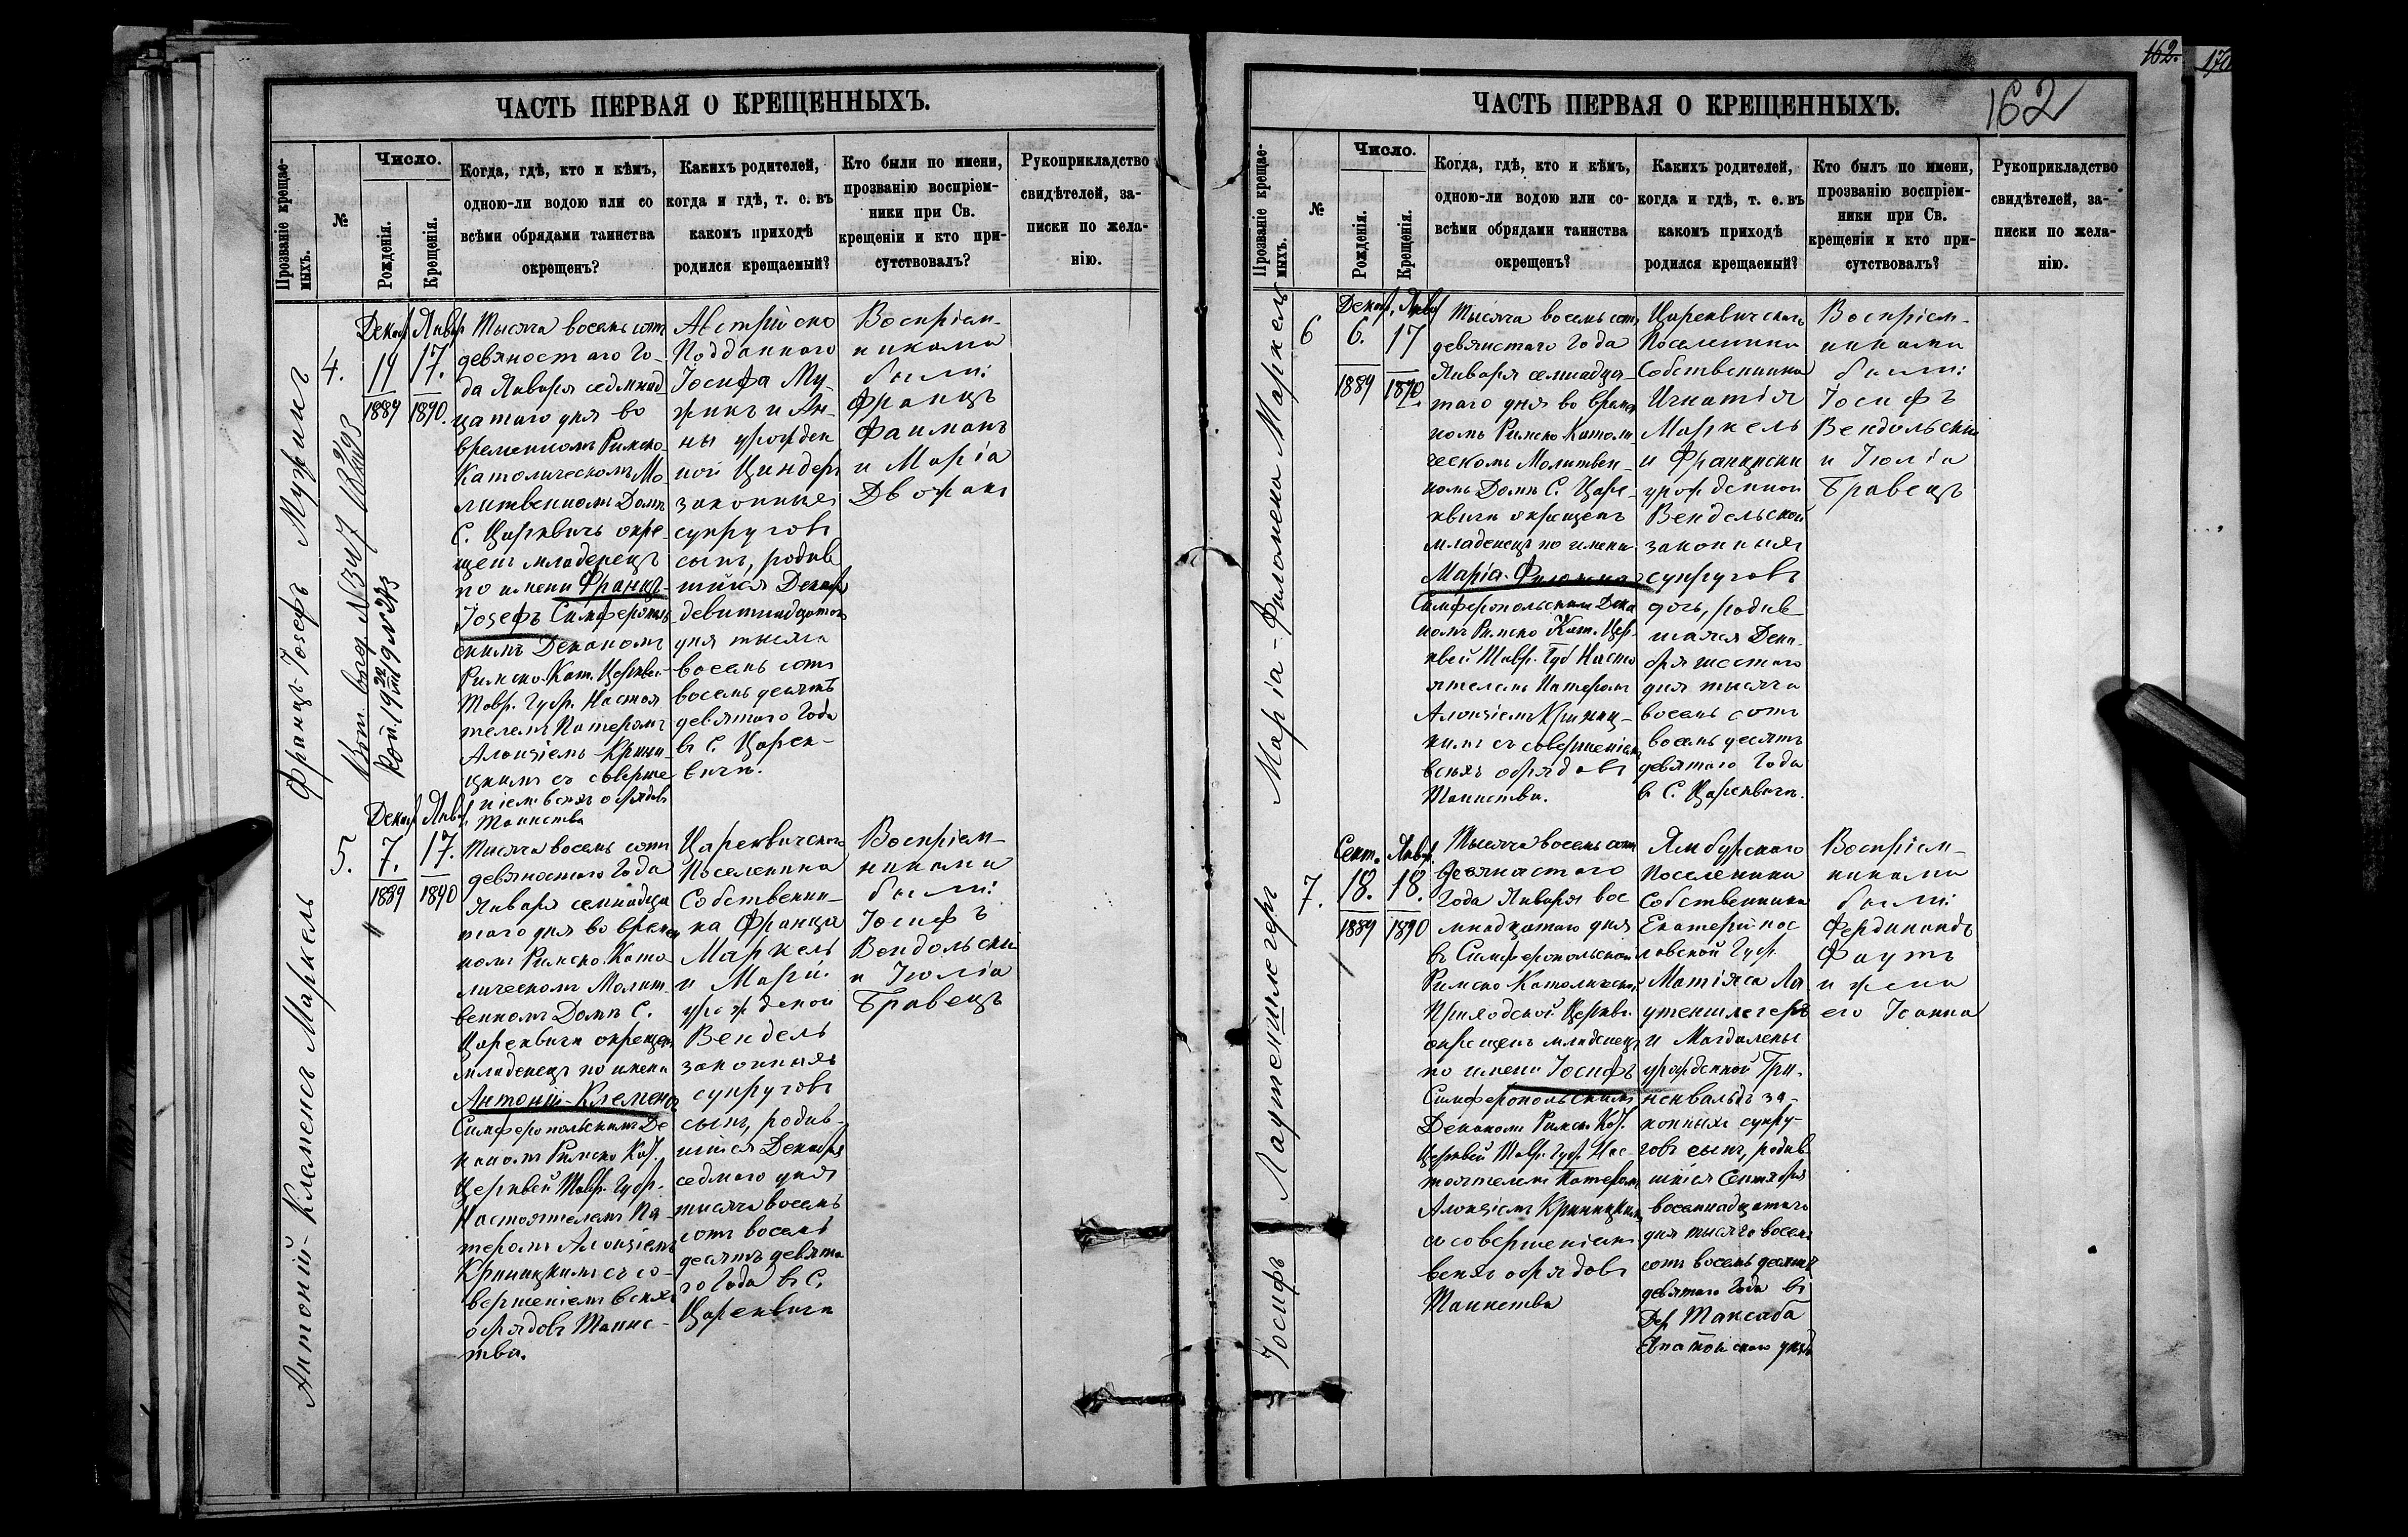 ЧАСТЬ ПЕРВАЯ О КРЕЩЕННЫХЪ.
Прозваніе крещае-
мыхъ.
№
Число.
Рожденія.
Крещенія.
Когда, гдѣ, кто и кѣмъ,
одною-ли водою или со
всѣми обрядами таинства
окрещенъ?
Какихъ родителей,
когда и гдѣ, т. е. въ
какомъ приходѣ
родился крещаемый?
Кто были по имени,
прозванію воспріем-
ники при Св.
крещеніи и кто при-
сутствовалъ?
Рукоприкладство
свидѣтелей, за-
писки по жела-
нію.
Францъ-Іосефъ Мужикъ
4.
Декаб
19
1889
Январ
17.
1890.
Тысяча восемь сотъ
девяностаго Го-
да Января седмнад
цатаго дня во
временномъ Римско-
Католическомъ Мо
литвенномъ Домѣ
С. Царквичъ окре-
щенъ младенецъ
по имени Францъ-
Іосефъ Симферополь
скимъ Деканомъ
Римско-Кат. Церкви
Тавр. Губр. Настоя
телемъ Патеромъ
Алоизіемъ Крини
цкимъ съ соверше
ніемъ всѣхъ обрядовъ
Таинства
Австрійско
Подданного
Іосифа Му-
жикъ и Ан-
ны урожден
ной Циндеръ
законныхъ
супруговъ
сынъ, родив
шійся Декабр
девятнадцатого
дня тысяча
восемь сотъ
восемь десятъ
девятаго Года
въ С. Царек-
вичъ.
Воспріем-
никами
были:
Францъ
Фатманъ
и Марія
Дворакъ
Антоній-Клеменсъ Маркель
5.
Декаб
7.
1889
Январ
17.
1890
Тысяча восемь сотъ
девяностаго Года
Января семнадца
таго дня во времен
номъ Римско-Като
лическомъ Молит-
венномъ Домѣ С.
Царквичи окрещенъ
младенецъ по имени
Антоній-Клеменсъ
Симферопольскимъ Де
каномъ Римско Каѳ.
Церквей Тавр. Губр.
Настоятелемъ Па-
теромъ Алоизіемъ
Криницкимъ съ со-
вершеніемъ всѣхъ
обрядовъ Таинс-
тва.
Цареквичскаго
Поселянина
Собственни-
ка Франца
Маркель
и Маріи
урожденой
Вендель
законныхъ
супруговъ
сынъ, родив-
шійся Декабря
седмого дня
тысяча восемь
сотъ восемь
десятъ девята
го Года въ С.
Цареквичи
Воспріем-
никами
были:
Іосифъ
Вендольски
и Юлія
Бравецъ
162.
170
162
ЧАСТЬ ПЕРВАЯ О КРЕЩЕННЫХЪ.
Прозваніе крещае-
мыхъ.
№
Число.
Рожденія.
Крещенія.
Когда, гдѣ, кто и кѣмъ,
одною-ли водою или со-
всѣми обрядами таинства
окрещенъ?
Какихъ родителей,
когда и гдѣ, т. е. въ
какомъ приходѣ
родился крещаемый?
Кто былъ по имени,
прозванію воспріем-
ники при Св.
крещеніи и кто при-
сутствовалъ?
Рукоприкладство
свидѣтелей, за-
писки по жела-
нію.
Марія-Филомена Маркель
6
Декаб,
6.
1889
Январ
17
1890.
Тысяча восемь сотъ
девянстаго Года
Января семнадца-
таго дня во времен
номъ Римско Католи
ческомъ Молитвен-
номъ Домѣ С. Царе-
квичи окрещенъ
младенецъ по имени
Марія-Филомена
Симферопольскимъ Дека
номъ Римско Кат. Цер-
квей Тавр. Губ Насто
ятелемъ Патеромъ
Алоизіемъ Криниц-
кимъ съ совершеніемъ
всѣхъ обрядовъ
Таинства.
Цареквичскаго
Поселянина
Собственника
Игнатія
Маркель
и Франциски
урожденной
Вендельской
законныхъ
супруговъ
дочь, родив
шаяся Дека-
бря шестаго
дня тысяча
восемь сотъ
восемь десятъ
девятаго Года
въ С. Цареквичи.
Воспріем-
никами
были:
Іосифъ
Вендольскій
и Юлія
Бравецъ
Іосифъ Лаутеншлегеръ
7.
Сент.
18.
1889
Январ.
18.
1890
Тысяча восемь сотъ
девяностаго
Года Января вос
мнадцатаго дня
въ Симферопольской
Римско Католической
Приходской Церкви
окрещенъ младенецъ
по имени Іосифъ
Симферопольскимъ
Деканомъ Римско Каѳ.
Церквей Тавр. Губр. Нас-
тоятелемъ Патеромъ
Алоизіемъ Криницкимъ
съ совершеніемъ
всѣхъ обрядовъ
Таинства
Ямбургскаго
Поселянина
Собственника
Екатеринос
лавской Губр.
Матіяса Ла
утеншлегеръ
и Магдалены
урожденной Гри-
ненвальдъ за-
конныхъ супру-
говъ сынъ, родив
шійся Сентября
восемнадцатаго
дня тысяча восемь
сотъ восемь десятъ
девятаго Года въ
Дер Таксаба
Воспріем-
никами
были:
Фердинандъ
Фаутъ
и жена
его Іоанна